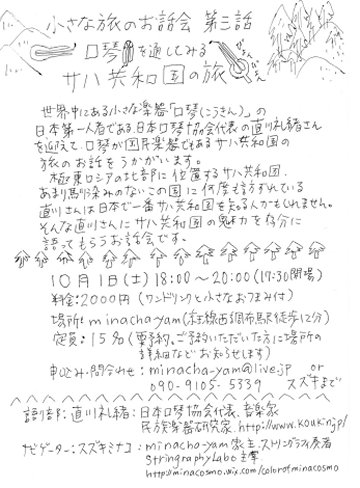 小さな旅のお話会 第三話
口琴を通してみる
サハ共和国の旅
世界中にある小さな楽器「口琴(こうきん)」の
日本第一人者である、日本口琴協会代表の直川礼緒さん
を迎えて、口琴が国民楽器でもあるサハ共和国の
旅のお話をうかがいます。
極東ロシアの北部に位置するサハ共和国。
あまり馴染みのないこの国に何度も訪ずれている
直川さんは日本で一番サハ共和国を知る人かもしれません。
そんな直川さんにサハ共和国の魅力を存分に
語ってもらうお話会です。
10月1日(土) 18:00〜20:00 (17:30開場)
料金:2000円 (ワンドリンクと小さなおつまみ付)
場所: minacha-yam (京王線西調布駅徒歩12分)
定員:15名 (要予約、ご予約いただいた方に場所の
詳細などお知らせします)
申込み・問合わせ: minacha-yam@live.jp or
090-9105-5339 スズキまで
語り部:直川礼緒:日本口琴協会代表、音楽家
民族楽器研究家 http://www.koukin.jp/
ナビゲーター:スズキミナコ:minacha-yam家主、ストリングラフィ奏者
StringraphyLabo主宰
http://minacosmo.wix.com/colorofminacosmo